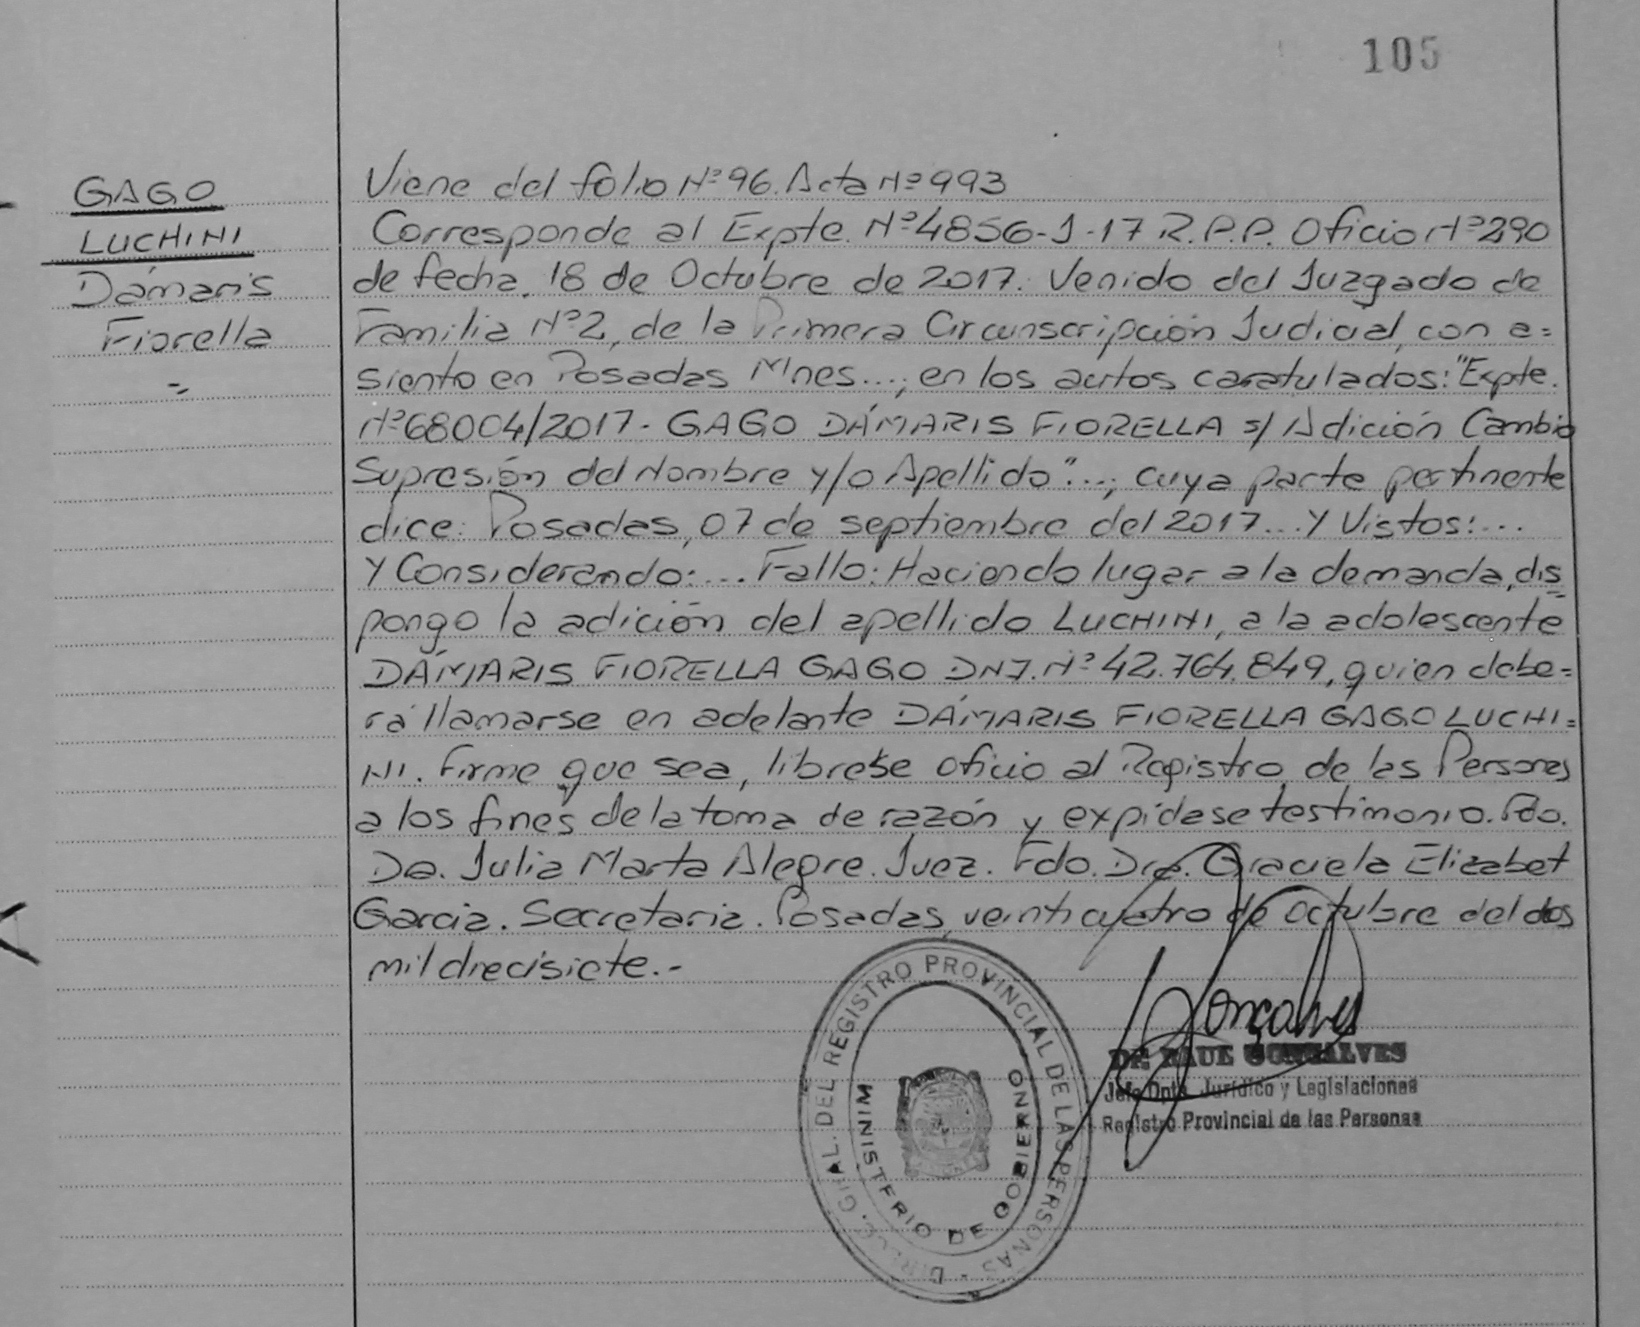 105
GAGO
LUCHINI
Dámaris
Fiorella
Viene del folio Nº 96. Acta Nº 993
Corresponde al Expte. Nº 4856-J-17 R.P.P. Oficio Nº 290
de fecha 18 de Octubre de 2017. Venido del Juzgado de
Familia Nº 2, de la Primera Circunscripción Judicial, con a=
siento en Posadas Mnes...; en los autos caratulados: "Expte.
Nº 68004/2017- GAGO DÁMARIS FIORELLA s/ Adición Cambio
Supresión del Nombre y/o Apellido"...; cuya parte pertinente
dice: Posadas, 07 de septiembre del 2017... Y Vistos:...
Y Considerando:... Fallo: Haciendo lugar a la demanda, dis
pongo la adición del apellido LUCHINI, a la adolescente
DÁMARIS FIORELLA GAGO DNI. Nº 42.764.849, quien debe=
rá llamarse en adelante DÁMARIS FIORELLA GAGO LUCHI=
NI. Firme que sea, librese oficio al Registro de las Personas
a los fines de la toma de razón y expídase testimonio. Fdo.
Da. Julia Marta Alegre. Juez. Fdo. Dra. Graciela Elizabet
Garcia. Secretaria. Posadas, veinticuatro de octubre del dos
mil diecisiete.-
Gonçalves
DR. RAUL GONSALVES
Jefe Dpto. Jurídico y Legislaciones
Registro Provincial de las Personas
GRAL. DEL REGISTRO PROVINCIAL DE LAS PERSONAS
MINISTERIO DE GOBIERNO